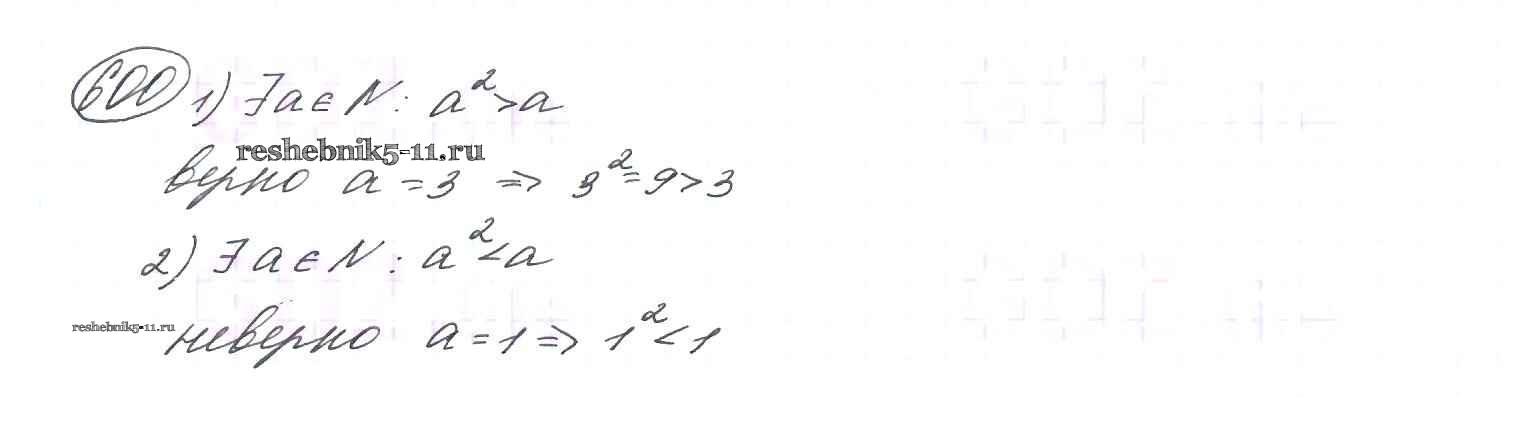 600 1) ∃a∈N: a²>a
reshebnik5-11.ru
верно a=3 => 3²=9>3
2) ∃a∈N: a²<a
reshebnik5-11.ru
неверно a=1 => 1²<1